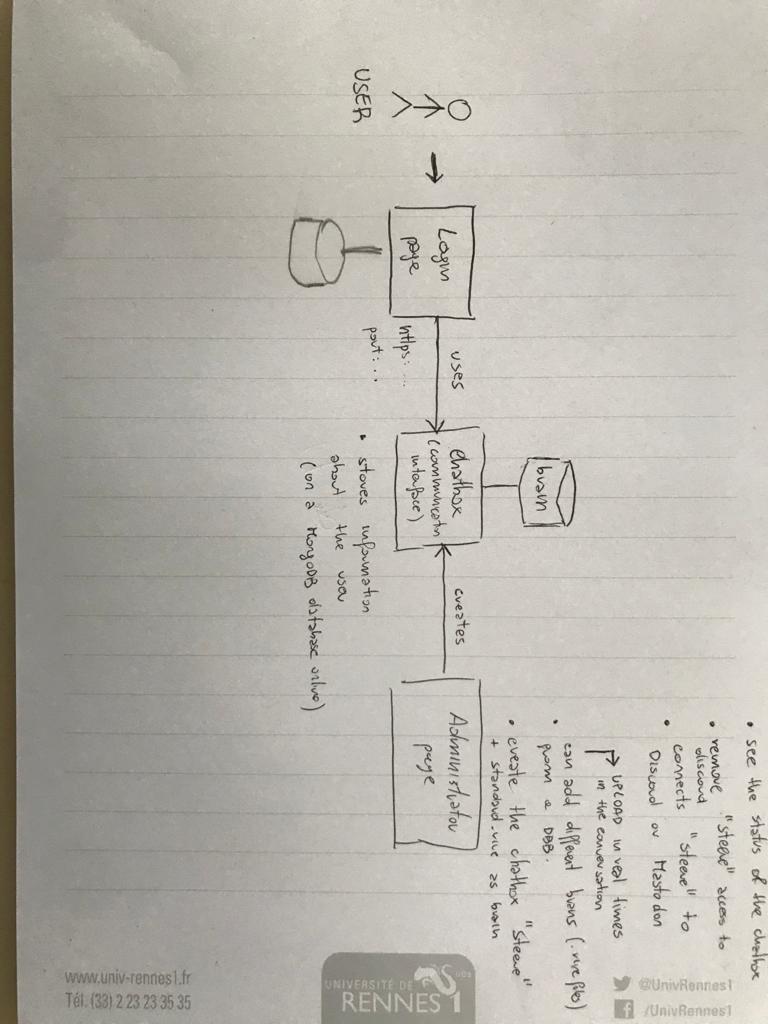 • see the status of the chatbox
• remove "steeve" access to
discord
• connects "steeve" to
Discord or Mastodon
UPLOAD in real times
in the conversation
• can add different brains (.rive files)
from a DBB.
• create the chatbox "Steeve"
+ standard.rive as brain
brain
Login
page
uses
https:...
port:...
Chatbox
(communication
interface)
creates
Administrator
page
USER
• stores information
about the user
(on a MongoDB database online)
@UnivRennes1
/UnivRennes1
UNIVERSITÉ DE
RENNES 1
www.univ-rennes1.fr
Tél. (33) 2 23 23 35 35